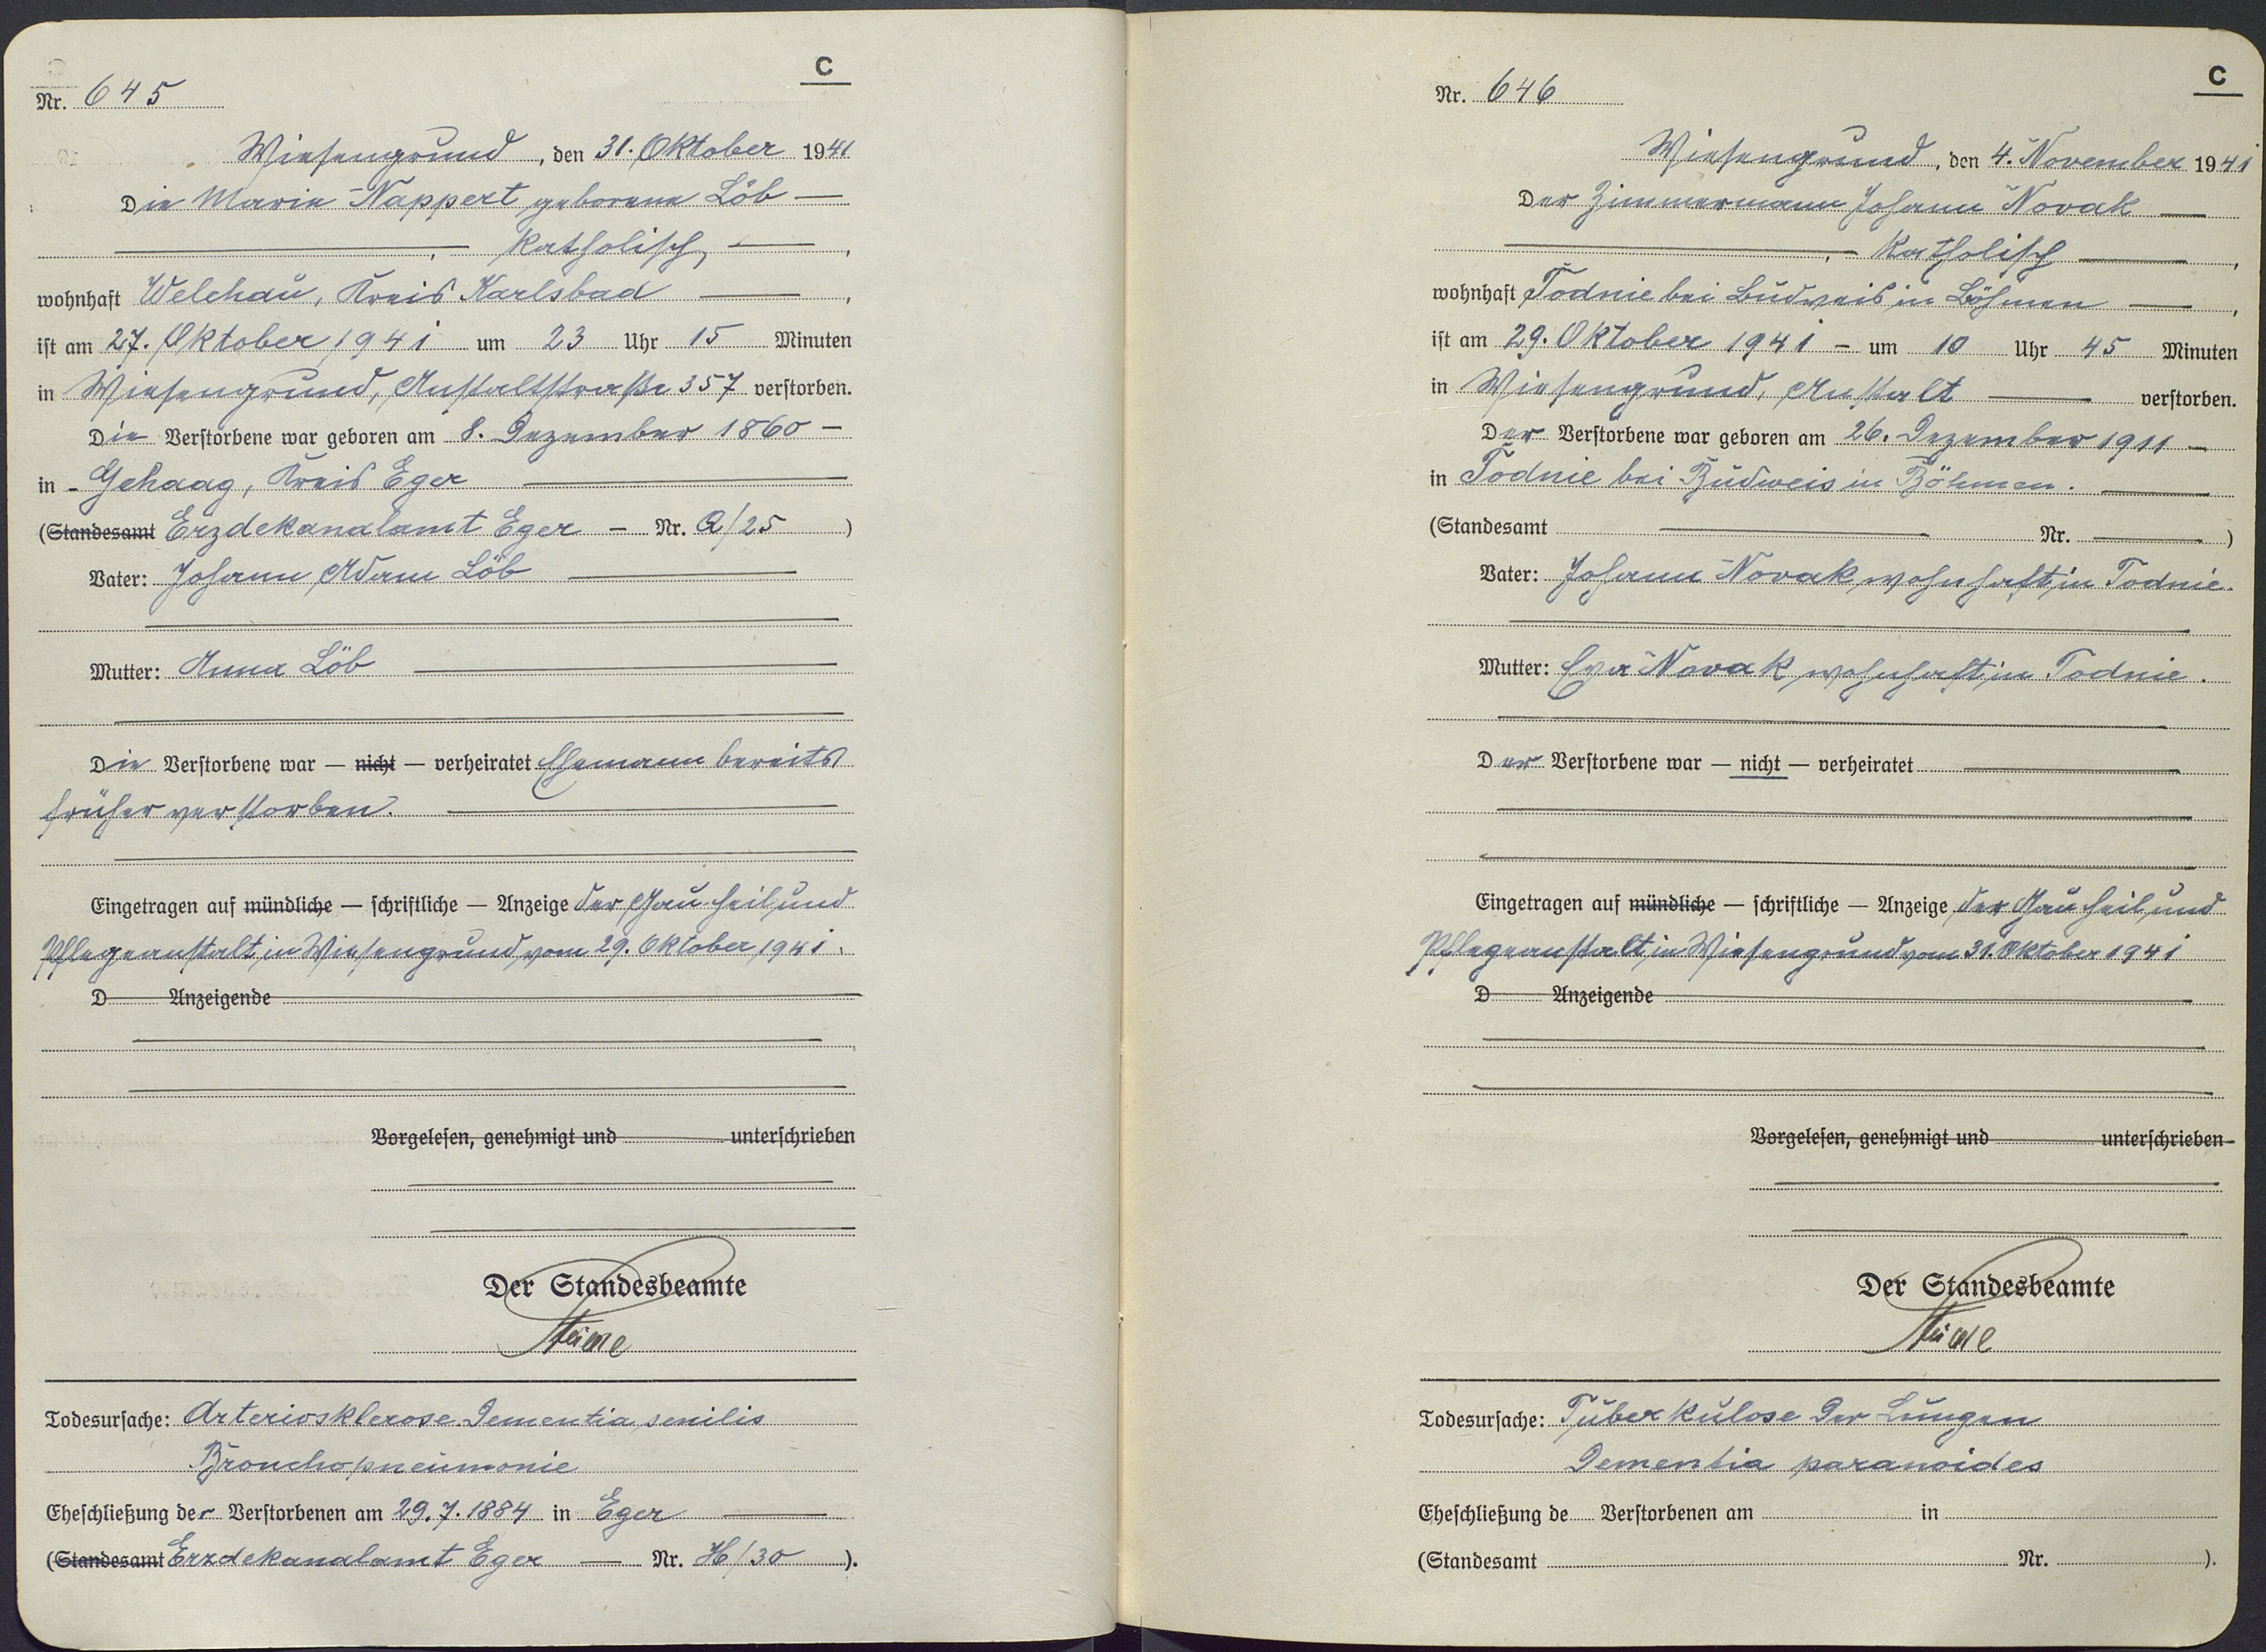 C
Nr. 645
Wiesengrund, den 31. Oktober 1941
Die Marie Nappert geborene Löb —
—, katholisch, —,
wohnhaft Welchau, Kreis Karlsbad —,
ist am 27. Oktober 1941 um 23 Uhr 15 Minuten
in Wiesengrund, Anstaltstraße 357 verstorben.
Die Verstorbene war geboren am 8. Dezember 1860 —
in Gehaag, Kreis Eger —
(Standesamt Erzdekanalamt Eger — Nr. Q/25 )
Vater: Johann Adam Löb —
Mutter: Anna Löb —
Die Verstorbene war — nicht — verheiratet Ehemann bereits
früher verstorben. —
Eingetragen auf mündliche — schriftliche — Anzeige der Gau-Heil und
Pflegeanstalt in Wiesengrund vom 29. Oktober 1941.
D Anzeigende
Vorgelesen, genehmigt und unterschrieben
Der Standesbeamte
Todesursache: Arteriosklerose Dementia senilis
Bronchopneumonie
Eheschließung der Verstorbenen am 29.7.1884 in Eger —
(Standesamt Erzdekanalamt Eger — Nr. H/30 ).
C
Nr. 646
Wiesengrund, den 4. November 1941
Der Zimmermann Johann Novak —
—, katholisch —,
wohnhaft Todnie bei Budweis in Böhmen —,
ist am 29. Oktober 1941 — um 10 Uhr 45 Minuten
in Wiesengrund, Anstalt — verstorben.
Der Verstorbene war geboren am 26. Dezember 1911 —
in Todnie bei Budweis in Böhmen. —
(Standesamt — Nr. — )
Vater: Johann Novak wohnhaft in Todnie.
Mutter: Eva Novak wohnhaft in Todnie.
Der Verstorbene war — nicht — verheiratet —
Eingetragen auf mündliche — schriftliche — Anzeige der Gau Heil und
Pflegeanstalt in Wiesengrund vom 31. Oktober 1941
D Anzeigende
Vorgelesen, genehmigt und unterschrieben
Der Standesbeamte
Todesursache: Tuberkulose der Lungen
Dementia paranoides
Eheschließung de Verstorbenen am in
(Standesamt Nr. ).